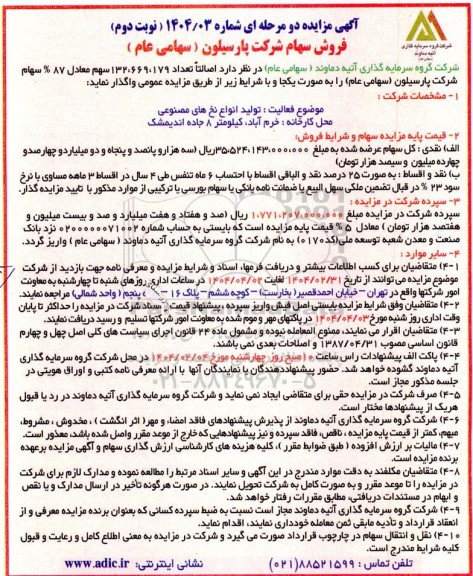 آگهی مزایده دو مرحله ای شماره ۱۴۰۴/۰۳ ( نوبت دوم)
فروش سهام شرکت پارسیلون ( سهامی عام )
شرکت گروه سرمایه گذاری
آتیه دماوند
شرکت گروه سرمایه گذاری آتیه دماوند ( سهامی عام) در نظر دارد اصالتاً تعداد ۱۳۲،۶۶۹،۱۷۹سهم معادل ۸۷ % سهام
شرکت پارسیلون (سهامی عام) را به صورت یکجا و با شرایط زیر از طریق مزایده عمومی واگذار نماید:
۱- مشخصات شرکت :
موضوع فعالیت : تولید انواع نخ های مصنوعی
محل کارخانه : خرم آباد، کیلومتر ۸ جاده اندیمشک
۲- قیمت پایه مزایده سهام و شرایط فروش:
الف) نقدی : کل سهام عرضه شده به مبلغ ۳۵،۵۲۴،۱۴۳،۰۰۰،۰۰۰ریال (سه هزارو پانصد و پنجاه و دو میلیاردو چهارصدو
چهارده میلیون و سیصد هزار تومان)
ب) نقد و اقساط : به صورت ۲۵ درصد نقد و الباقی اقساط با احتساب ۶ ماه تنفس طی ۴ سال در اقساط ۳ ماهه مساوی با نرخ
سود ۲۳ % در قبال تضمین ملکی سهل البیع یا ضمانت نامه بانکی یا سهام بورسی یا ترکیبی از موارد مذکور با تایید مزایده گذار.
۳- سپرده شرکت در مزایده :
سپرده شرکت در مزایده مبلغ ۱،۷۷۱،۲۰۷،۰۰۰،۰۰۰ ریال (صد و هفتاد و هفت میلیارد و صد و بیست میلیون و
هفتصد هزار تومان) معادل ۵ % قیمت پایه مزایده است که بایستی به حساب شماره ۰۲۰۰۰۰۰۰۷۱۰۰۲ نزد بانک
صنعت و معدن شعبه توسعه ملی(کد۰۱۷۰) به نام شرکت گروه سرمایه گذاری آتیه دماوند ( سهامی عام ) واریز گردد.
۴- سایر موارد :
۴-۱ متقاضیان برای کسب اطلاعات بیشتر و دریافت فرمها، اسناد و شرایط مزایده و معرفی نامه جهت بازدید از شرکت
موضوع مزایده می توانند از تاریخ ۱۴۰۴/۰۲/۳۱ لغایت ۱۴۰۴/۰۴/۰۲ در ساعات اداری روزهای شنبه تا چهارشنبه به معاونت
امور شرکتها واقع در تهران – خیابان احمدقصیر( بخارست) – کوچه ششم – پلاک ۱۶ – پنجم ( واحد شمالی) مراجعه نمایند.
۴-۲ متقاضیان وفق شرایط مزایده بایستی اصل فیش واریز سپرده، پیشنهاد قیمت و اسناد شرکت در مزایده را حداکثر تا پایان
وقت اداری روز شنبه مورخ ۱۴۰۴/۰۴/۰۳ در پاکتهای مهر و موم شده به معاونت امور شرکتها تسلیم و رسید دریافت نمایند.
۴-۳ متقاضیان اقرار می نمایند، ممنوع المعامله نبوده و مشمول ماده ۲۴ قانون اجرای سیاست های کلی اصل چهل و چهارم
قانون اساسی مصوب ۱۳۸۷/۰۴/۳۱ و اصلاحات بعدی نمی باشند.
۴-۴ پاکت الف پیشنهادات راس ساعت ۱۰صبح روز چهارشنبه مورخ ۱۴۰۴/۰۴/۰۴ در محل شرکت گروه سرمایه گذاری
آتیه دماوند گشوده خواهد شد. حضور پیشنهاددهندگان یا نمایندگان آنها با ارائه معرفی نامه کتبی و اوراق هویتی در
جلسه مذکور مجاز است.
۴-۵ صرف شرکت در مزایده حقی برای متقاضی ایجاد نمی نماید و شرکت گروه سرمایه گذاری آتیه دماوند در رد یا قبول
هریک از پیشنهادها مختار است.
۴-۶ شرکت گروه سرمایه گذاری آتیه دماوند از پذیرش پیشنهادهای فاقد امضا، و مهر( اثر انگشت ) ، مخدوش ، مشروط،
مبهم، کمتر از قیمت پایه مزایده ، ناقص، فاقد سپرده و نیز پیشنهادهایی که خارج از موعد مقرر واصل شده باشد، معذور است.
۴-۷ مالیات بر ارزش افزوده ( طبق ضوابط مقرر )، کلیه هزینه های کارشناسی ارزش گذاری سهام و آگهی مزایده برعهده
برنده مزایده است.
۴-۸ متقاضیان مکلفند به دقت موارد مندرج در این آگهی و سایر اسناد مرتبط را مطالعه نموده و مدارک لازم برای شرکت
در مزایده را تا موعد مقرر و به صورت کامل به شرکت تحویل نمایند. در صورت هرگونه تأخیر در ارسال مدارک و یا نقص
و ابهام در مستندات دریافتی، مطابق مقررات رفتار خواهد شد.
۴-۹ شرکت گروه سرمایه گذاری آتیه دماوند مجاز است نسبت به ضبط سپرده کسانی که بعنوان برنده مزایده معرفی و از
انعقاد قرارداد و تأدیه مابقی ثمن معامله خودداری نمایند، اقدام نماید.
۴-۱۰ نقل و انتقال سهام در چارچوب قرارداد صورت می گیرد و شرکت در مزایده به معنی اطلاع کامل و رعایت و قبول
کلیه شرایط مندرج است.
تلفن تماس : ۸۸۵۲۱۵۹۹(۰۲۱) نشانی اینترنتی: www.adic.ir